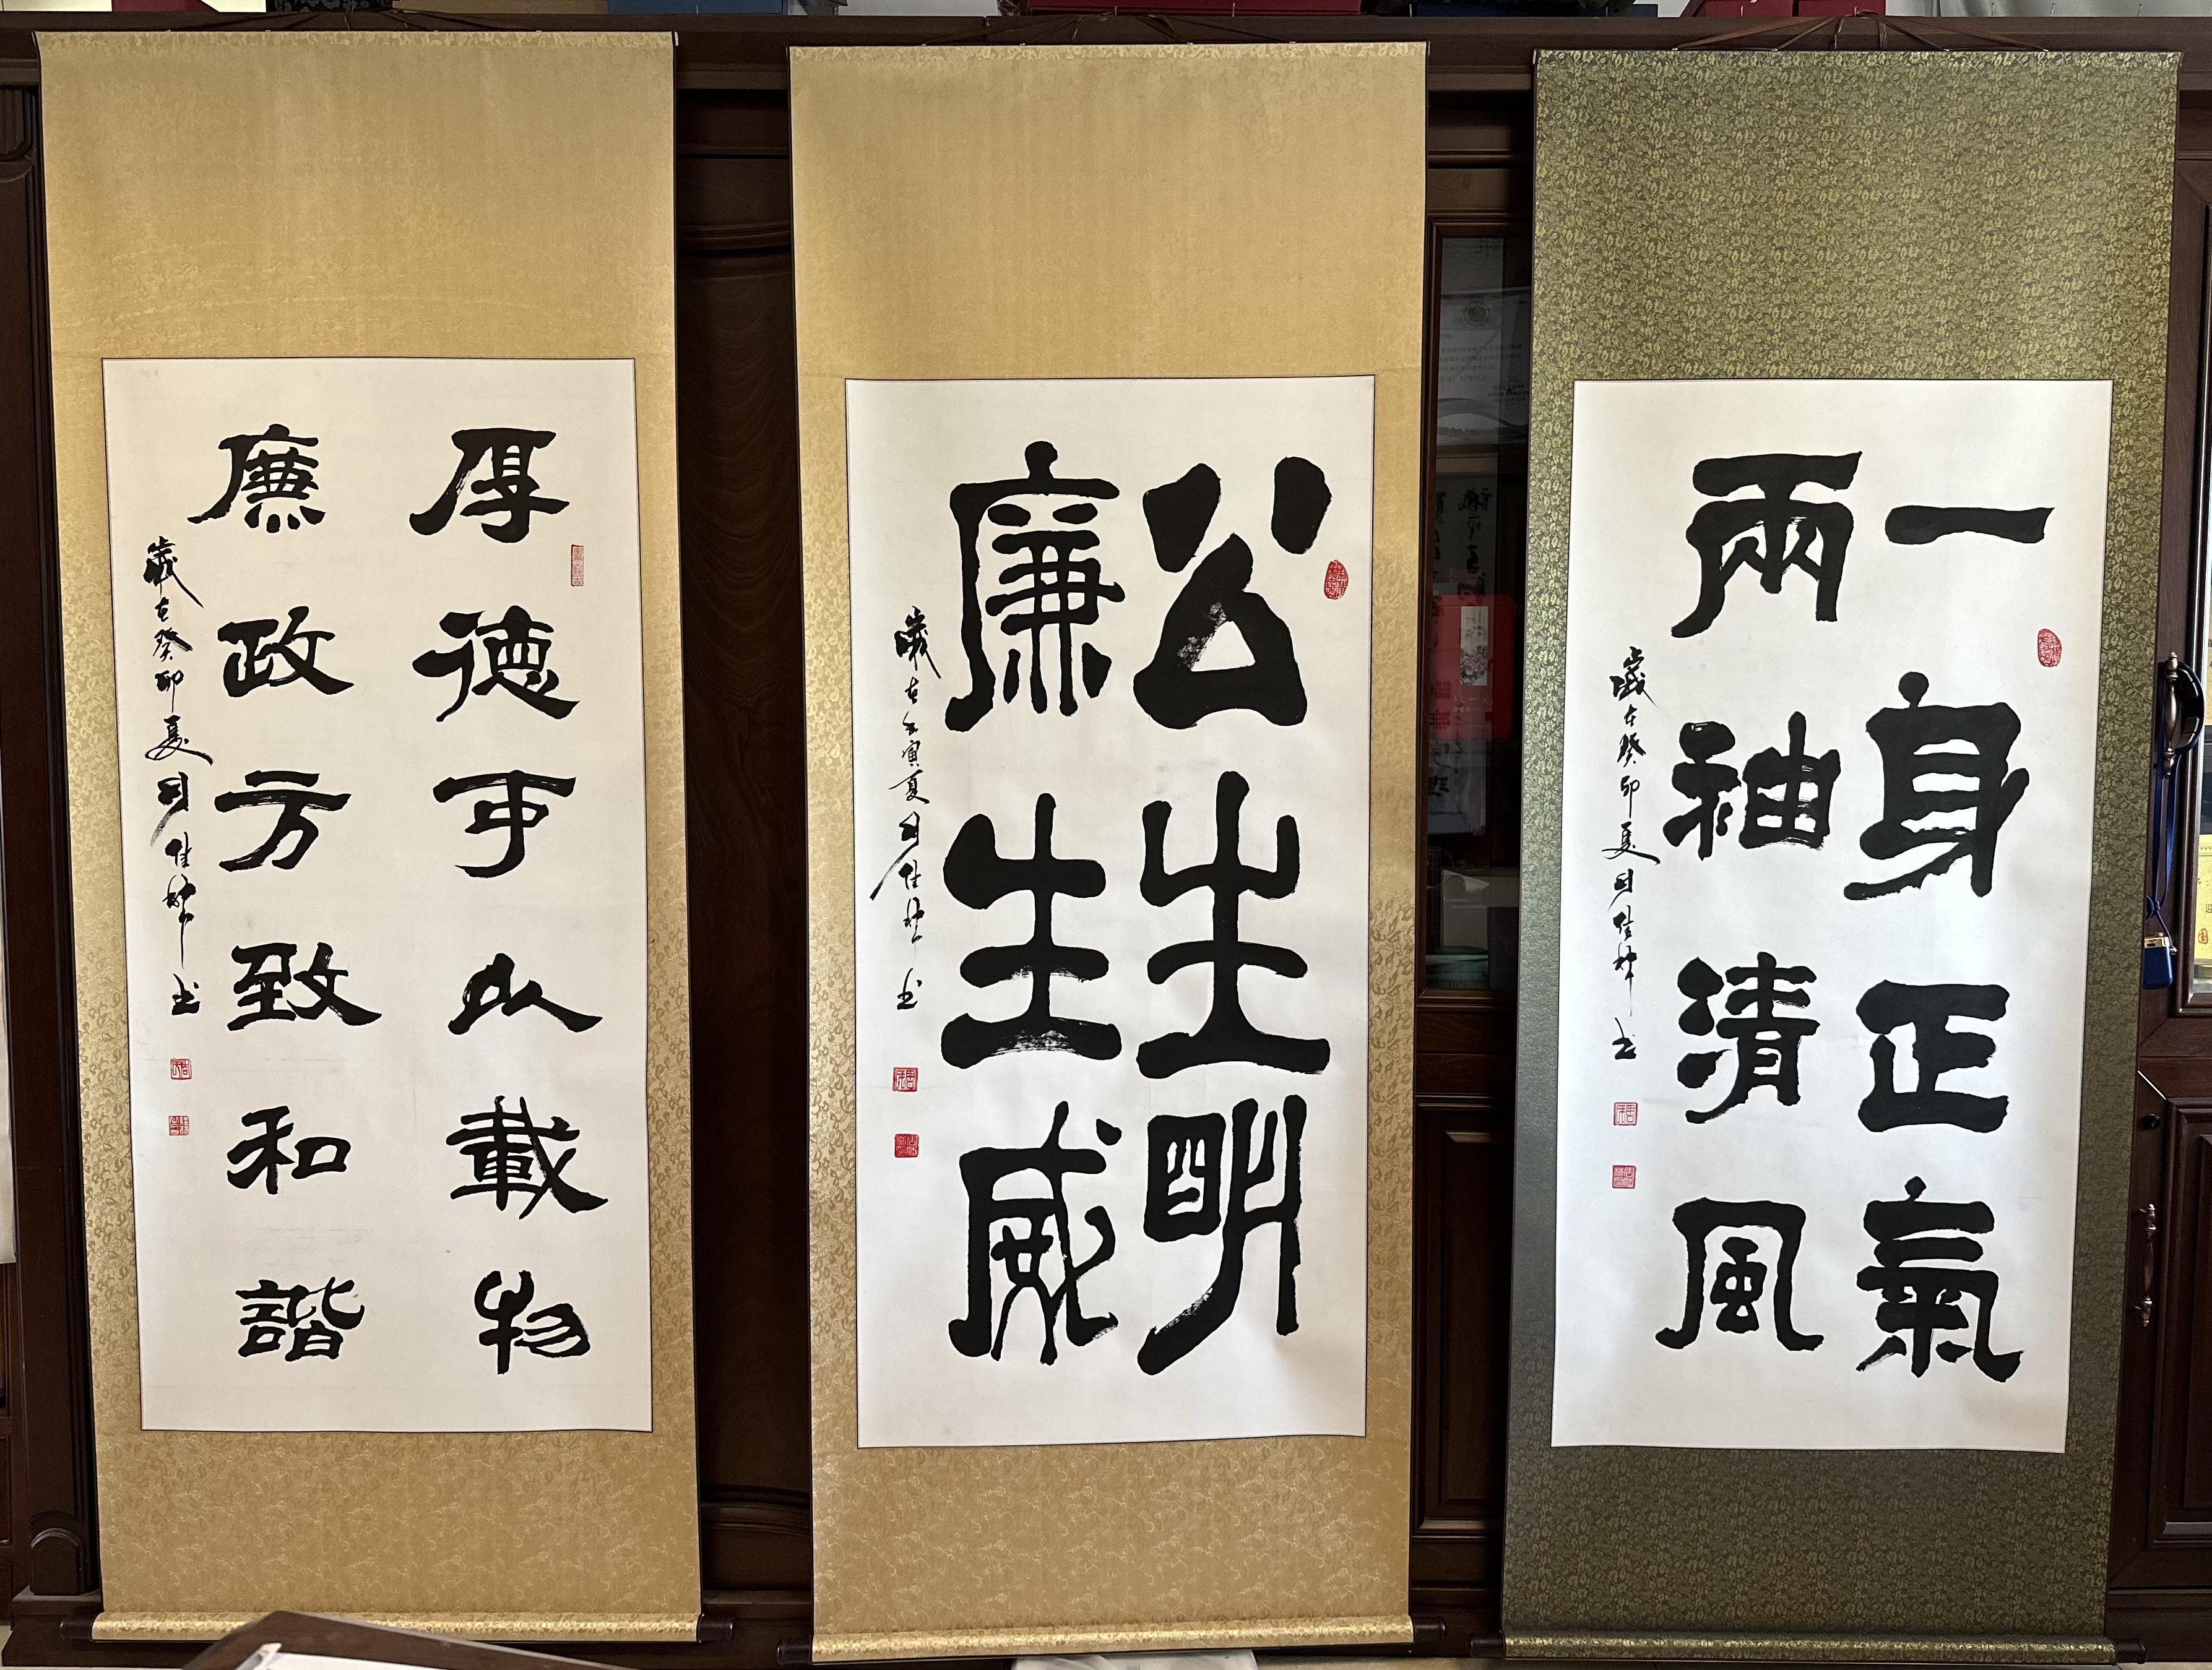 一身正氣
兩袖清風
歲在癸卯夏周佳坤书
公生明
廉生威
歲在壬寅夏周佳坤书
厚德可以載物
廉政方致和諧
歲在癸卯夏周佳坤书